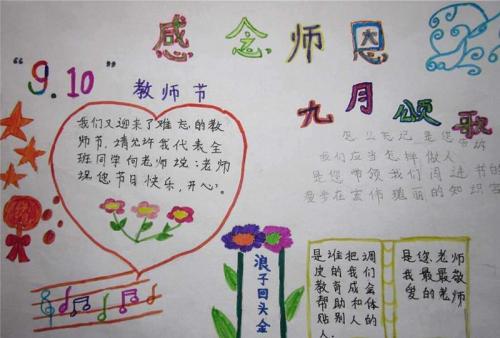 感念师恩
"9.10"
教师节
九月颂歌
我们又迎来了难忘的教
师节,请允许我代表全
班同学向老师说:老师
祝您节日快乐,开心。
怎么忘记是您告诉
我们应当怎样做人
是您带领我们阔进节的
爱步在宏伟瑰丽的知识宫
浪子回头金
是谁把我们调
皮的我们会
教育成会体
帮助别人的
贴人
是您,老师
我最最敬
爱的老师